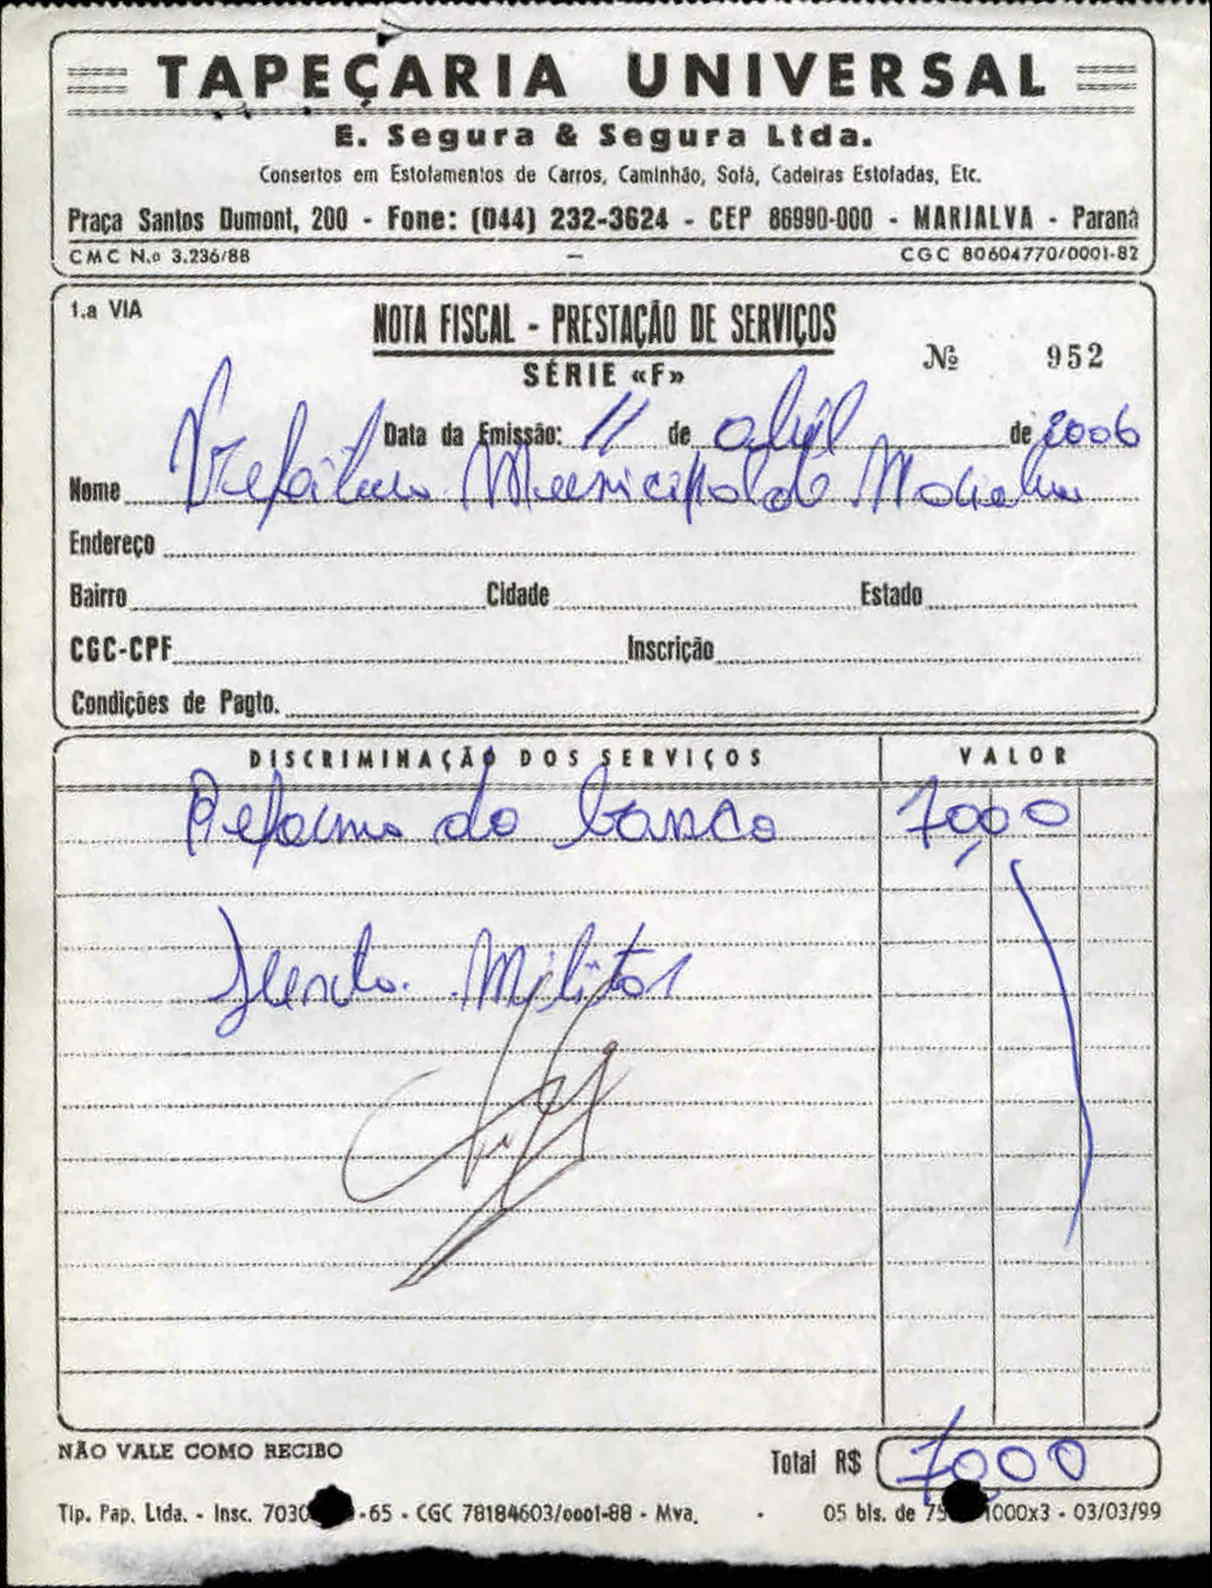 TAPEÇARIA UNIVERSAL
E. Segura & Segura Ltda.
Consertos em Estofamentos de Carros, Caminhão, Sofá, Cadeiras Estofadas, Etc.
Praça Santos Dumont, 200 - Fone: (044) 232-3624 - CEP 86990-000 - MARIALVA - Paraná
CMC N.o 3.236/88 - CGC 80604770/0001-82
1.a VIA
NOTA FISCAL - PRESTAÇÃO DE SERVIÇOS
Nº 952
SÉRIE «F»
Data da Emissão: 11 de abril de 2006
Nome Prefeitura Municipal de Marialva
Endereço
Bairro Cidade Estado
CGC-CPF Inscrição
Condições de Pagto.
DISCRIMINAÇÃO DOS SERVIÇOS VALOR
Reforma do banco 70,00
Junta Militar
NÃO VALE COMO RECIBO
Total R$ 70,00
Tip. Pap. Ltda. - Insc. 7030 -65 - CGC 78184603/0001-88 - Mva. - 05 bls. de 75 1000x3 - 03/03/99